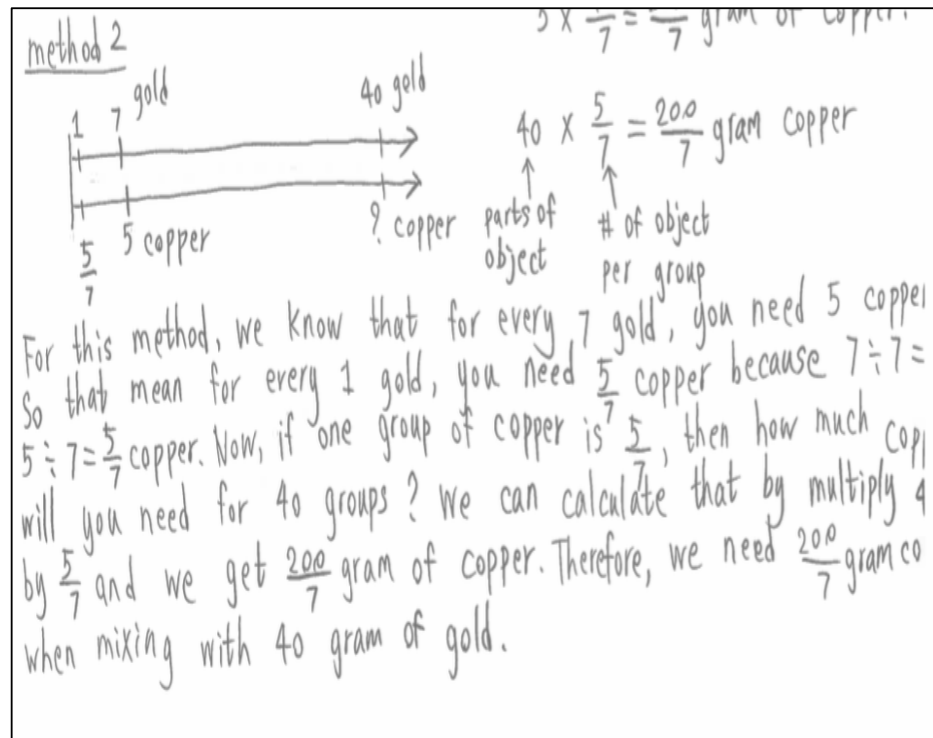 method 2
= gram of copper.
7 7
1 7 gold 40 gold
40 × 5/7 = 200/7 gram copper
5/7 5 copper ? copper
parts of object
# of object per group
For this method, we know that for every 7 gold, you need 5
So that mean for every 1 gold, you need 5/7 copper because 7÷7=
5÷7=5/7 copper. Now, if one group of copper is 5/7, then how much
will you need for 40 groups? We can calculate that by multiply
by 5/7 and we get 200/7 gram of copper. Therefore, we need 200/7 gram
when mixing with 40 gram of gold.